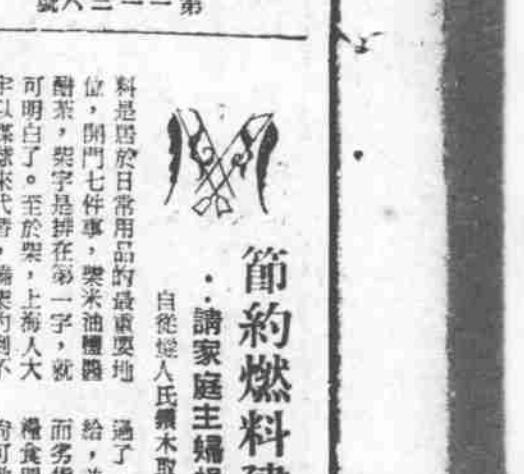 第一一三八號
節約燃料
：請家庭主婦
自從燧人氏鑽木取
料是居於日常用品的最重要地
位，開門七件事，柴米油鹽醬
醋茶，柴字是排在第一字，就
可明白了。至於柴，上海人大
以煤球來代替，
過了
給，
而劣
糧食
尚可